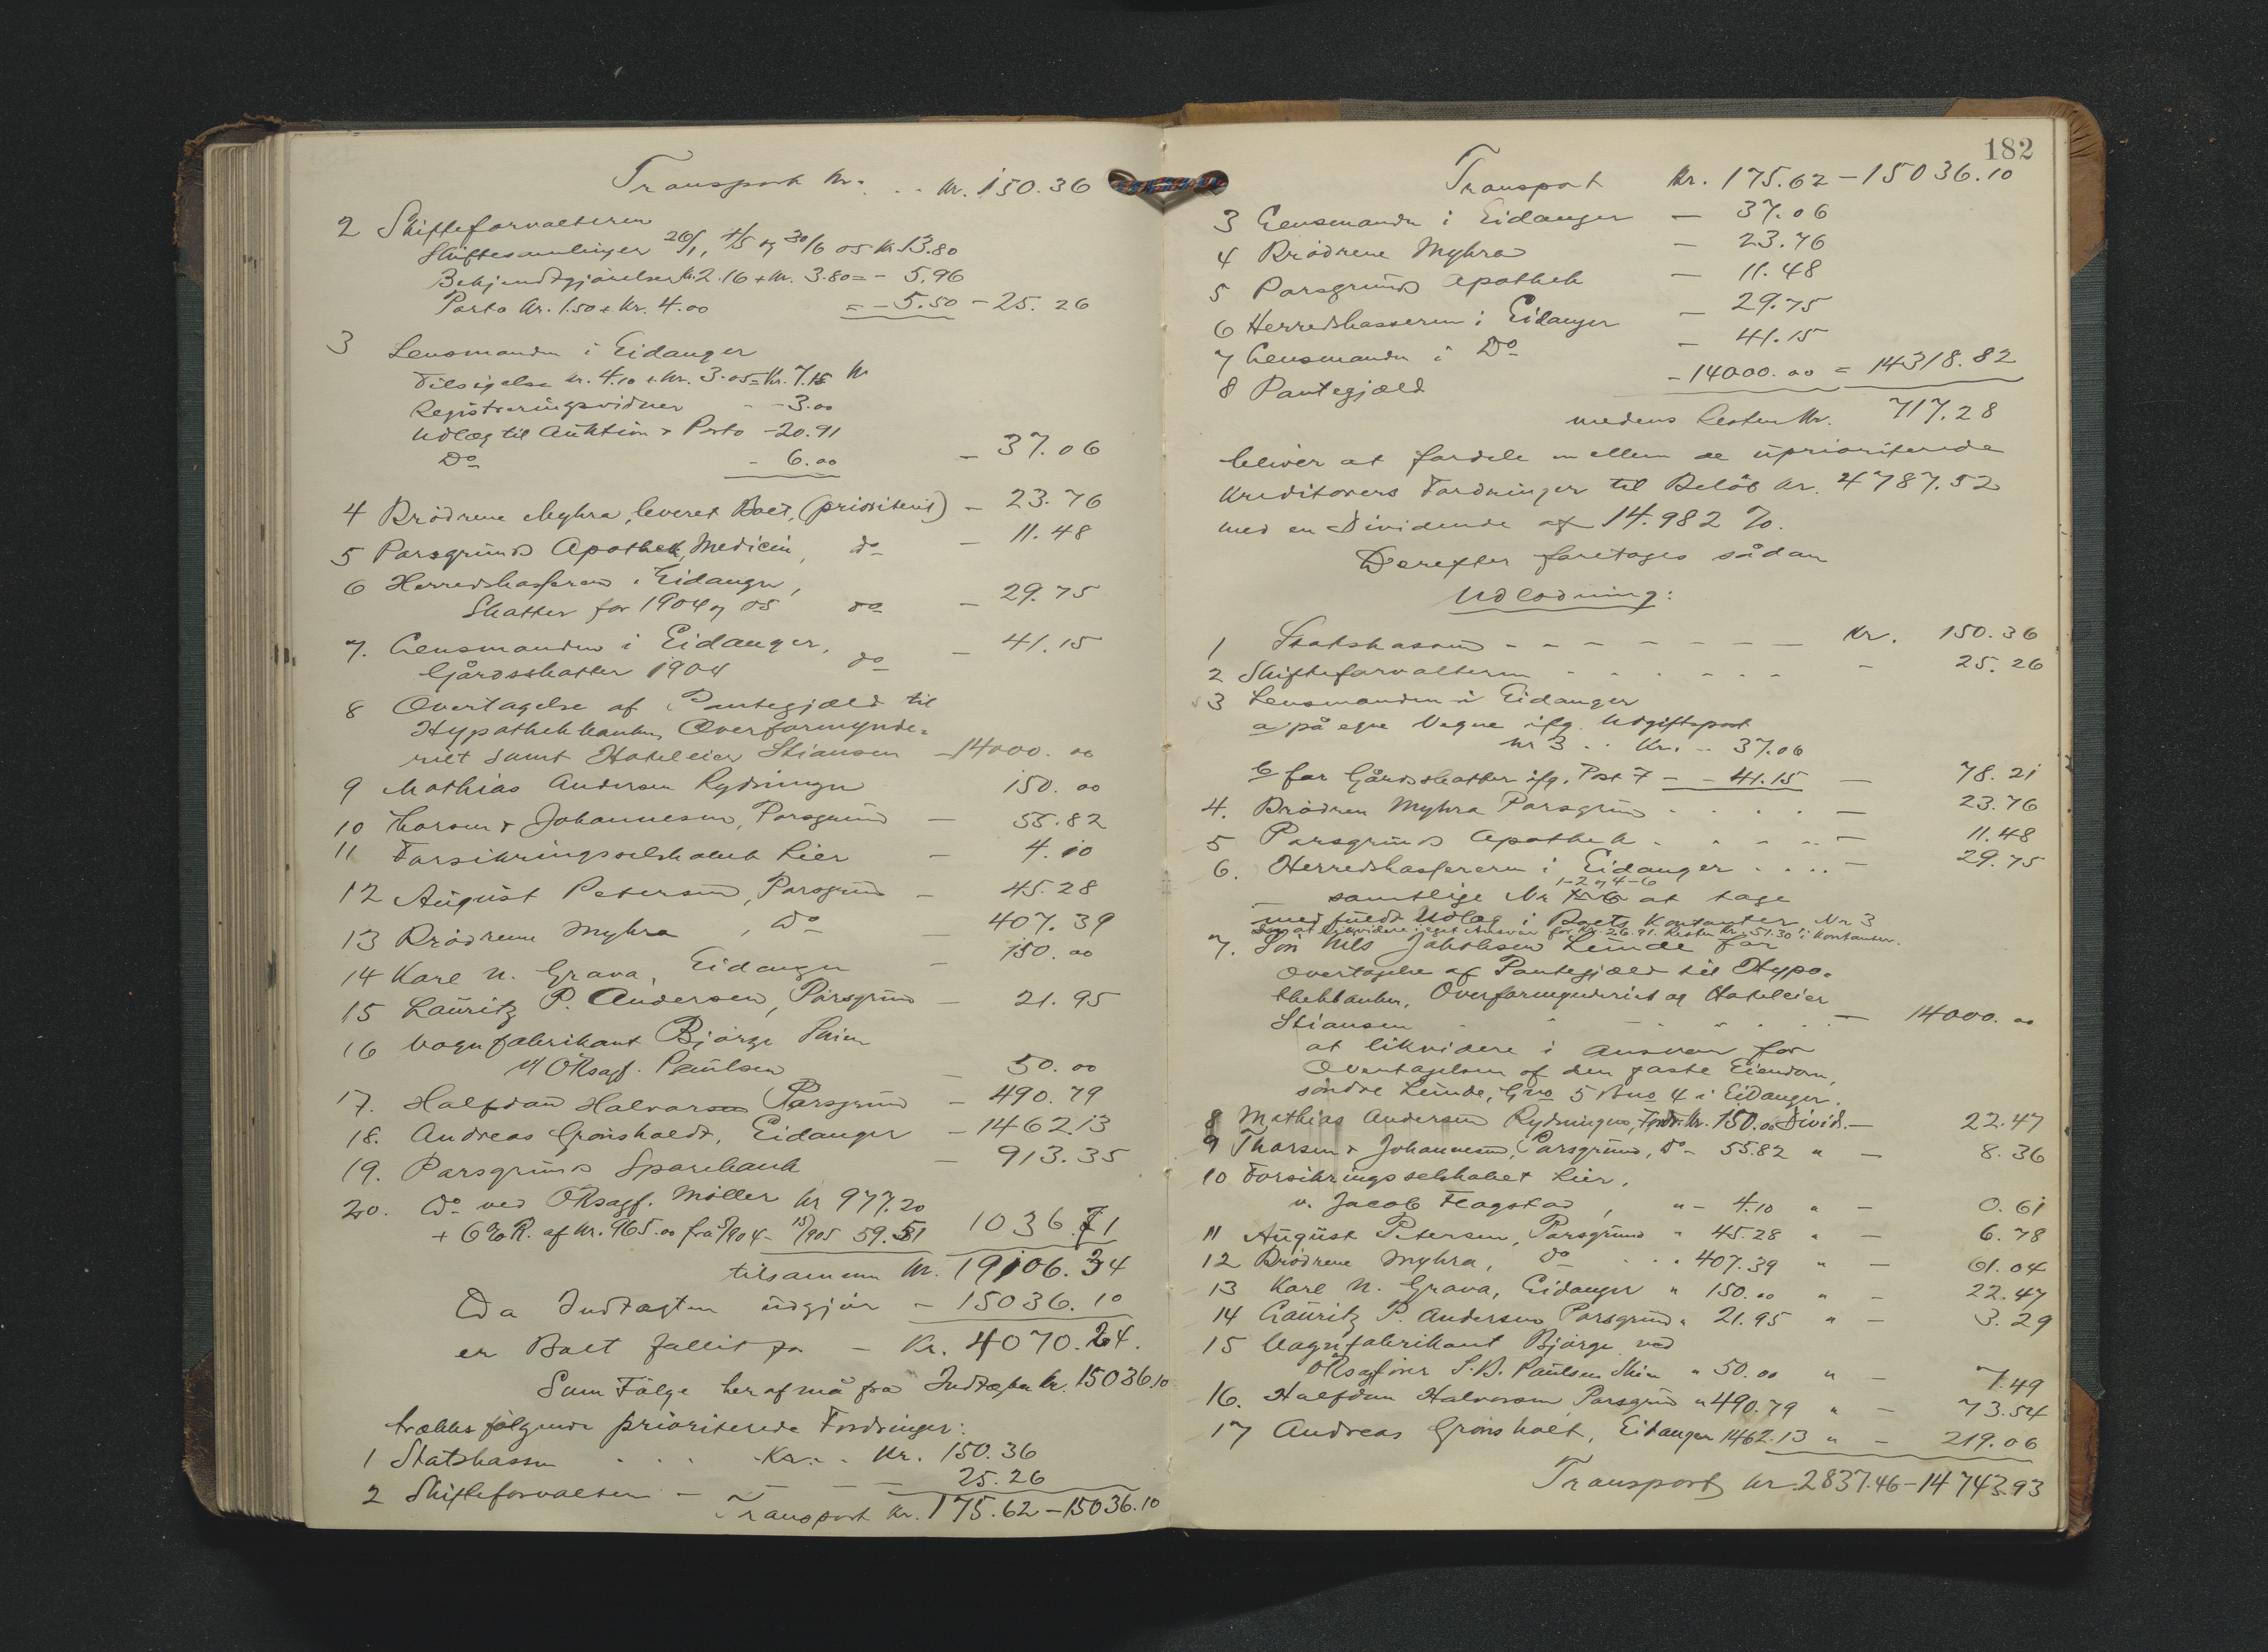 Transport Kr. . . Kr. 150.36
2 Skifteforvalteren
Skiftesamlinger 26/1, 4/5 og 30/6 05 Kr. 13.80
Bekjendtgjörelser Kr. 2.16 + Kr. 3.80 = - 5.96
Porto Kr. 1.50 + Kr. 4.00 = - 5.50 - 25.26
3 Lensmanden i Eidanger
Tilsigelse Kr. 4.10 + Kr. 3.05 = Kr. 7.15 Kr
Registreringsvidner - - 3.00
Udlæg til Auktion & Porto - 20.91
Do - 6.00 - 37.06
4 Brödrene Myhra, leveret Boet, (prioritert) - 23.76
5 Porsgrunds Apothek, Medicin, do - 11.48
6 Herredskasseren i Eidanger,
Skatter for 1904 og 05 do - 29.75
7. Lensmanden i Eidanger,
Gårdsskatter 1904 do - 41.15
8 Overtagelse af Pantegjæld til
Hypothekbanken, Overformynde-
riet samt Hoteleier Stiansen - 14000.00
9 Mathias Andersen Rydningen 150.00
10 Thorsen & Johannesen, Porsgrund - 55.82
11 Forsikringsselskabet Lier - 4.10
12 August Petersen, Porsgrund - 45.28
13 Brödrene Myhra, Do - 407.39
14 Karl N. Grava, Eidanger - 150.00
15 Lauritz P. Andersen, Porsgrund - 21.95
16 Vognfabrikant Bjorge Skien
v/ ORsagf. Paulsen - 50.00
17. Halfdan Halvorsen Porsgrund - 490.79
18. Andreas Grönsholdt, Eidanger - 1462.13
19. Porsgrunds Sparebank - 913.35
20. Do ved ORsagf. Möller Kr 977.20
+ 6% R. af Kr. 965.00 fra /904 - 15/905 59.51 1036.71
tilsammen Kr. 19106.34
Da Indtægten udgjör - 15036.10
er Boet fallit for - Kr. 4070.24.
Som Fölge heraf må fra Indtægten Kr. 15036.10
trækkes fölgende prioriterede Fordringer:
1 Statskassen . . . Kr. . . Kr. 150.36
2 Skifteforvalteren - - - 25.26
Transport Kr. 175.62 - 15036.10
182
Transport Kr. 175.62 - 15036.10
3 Lensmanden i Eidanger - 37.06
4 Brödrene Myhra - 23.76
5 Porsgrunds Apothek - 11.48
6 Herredskasseren i Eidanger - 29.75
7 Lensmanden i Do - 41.15
8 Pantegjæld - 14000.00 = 14318.82
medens Resten Kr. 717.28
bliver at fordele mellem de uprioriterede
Kreditorers Fordringer til Belöb Kr. 4787.52
med en Dividende af 14.982 %.
Derefter foretages sådan
Udlodning:
1 Statskassen - - - - - - - Kr. 150.36
2 Skifteforvalteren . . . . . . - 25.26
3 Lensmanden i Eidanger
a på egne Vegne ifg. Udgiftspost
nr 3 . . Kr. - 37.06
b for Gårdsskatter ifg. Post 7 - - 41.15 - 78.21
4. Brödrene Myhra Porsgrund . . . . - 23.76
5 Porsgrunds Apothek . . . . . - 11.48
6. Herredskasseren i Eidanger . . . . - 29.75
1-2 og 4-6
samtlige Nr 1-6 at tage
med fuldt Udlæg i Boets Kontanter Nr 3
at likvidere i eget Ansvar for Kr. 26.91. Resten Kr. 51.30 i Kontanter.
7. Sön Nils Jakobsen Lunde for
Overtagelse af Pantegjæld til Hypo-
thekbanken, Overformynderiet og Hoteleier
Stiansen . . - . . . - 14000.00
at likvidere i Ansvar for
Overtagelsen af den faste Eiendom,
söndre Lunde, Gno 5 Bno 4 i Eidanger.
8 Mathias Andersen Rydningen, Fordr. Kr. 150.00 Divid. - 22.47
9 Thorsen & Johannesen, Porsgrund, Do - 55.82 " - 8.36
10 Forsikringsselskabet Lier,
v. Jacob Flagstad, " - 4.10 " - 0.61
11 August Petersen, Porsgrund " 45.28 " - 6.78
12 Brödrene Myhra, do . . . 407.39 " - 61.04
13 Karl N. Grava, Eidanger " 150.00 " - 22.47
14 Lauritz P. Andersen Porsgrund " 21.95 " - 3.29
15 Vognfabrikant Bjorge ved
ORsagförer S.B. Paulsen Skien " 50.00 " - 7.49
16. Halfdan Halvorsen Porsgrund " 490.79 " - 73.54
17 Andreas Grönsholt, Eidanger 1462.13 " - 219.06
Transport Kr. 2837.46 - 14743.93